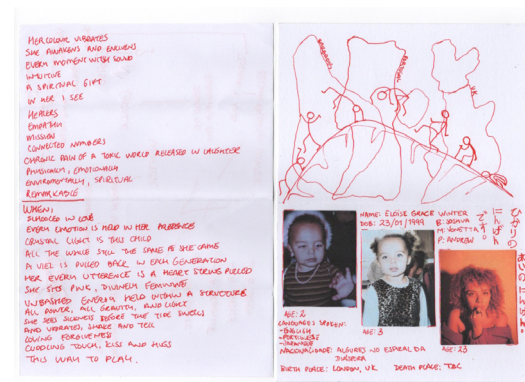 HER COLOUR VIBRATES
SHE AWAKENS AND ENLIVENS
EVERY MOMENT WITH SOUND
INTUITIVE
A SPIRITUAL GIFT
IN HER I SEE
HEALERS
EMPATHY
MISSION
CONNECTED NUMBERS
CHRONIC PAIN OF A TOXIC WORLD RELEASED IN LAUGHTER
PHYSICALLY, EMOTIONALLY
ENVIROMENTALLY, SPIRITUAL
REMARKABLE
WHEN,
IN LOVE
EVERY EMOTION IS HELD IN HER PRESENCE
CRYSTAL LIGHT IS THIS CHILD
ALL THE WHILE STILL THE SAME AS SHE CAME
A VIEL IS PULLED BACK IN EACH GENERATION
HER EVERY UTTERENCE IS A HEART STRING PULLED
SHE SITS PINK, DIVINELY FEMININE
UNBIASED ENERGY HELD WITHIN A STRUCTURE
ALL POWER, ALL GRAVITY, AND LIGHT
SHE SEES SICKNESS BEFORE THE TIDE SWELLS
AND VIBRATES, SHAKE AND TELL
LOVING FORGIVENESS
CUDDLING TOUCH, KISS AND HUGS
THIS WAY TO PLAY.
UK
NAME: ELOISE GRACE WINTER
DOB: 23/01/1999
B: JOSHUA
M: VONETTA
P: ANDREW
ひかりの
にんげん
です。
あいの にんげん。
AGE: 2
LANGUAGES SPOKEN:
-ENGLISH
-PORTUGUESE
-JAPANESE
AGE: 3
AGE: 23
NACIONALIDADE: ALGURES NO ESPIRAL DA
DIÁSPORA
BIRTH PLACE: LONDON, UK
DEATH PLACE: TBC